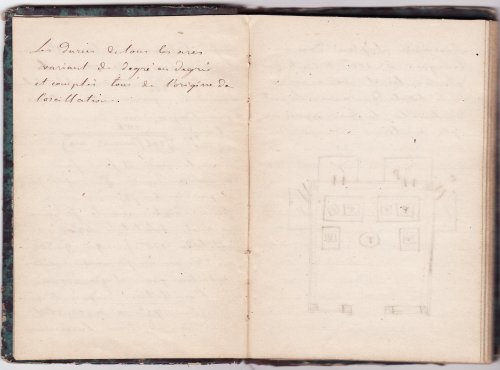 Les Durées de tous les arcs
variant de degré en degrés
et comptés tous de l'origine de
l'oscillation.